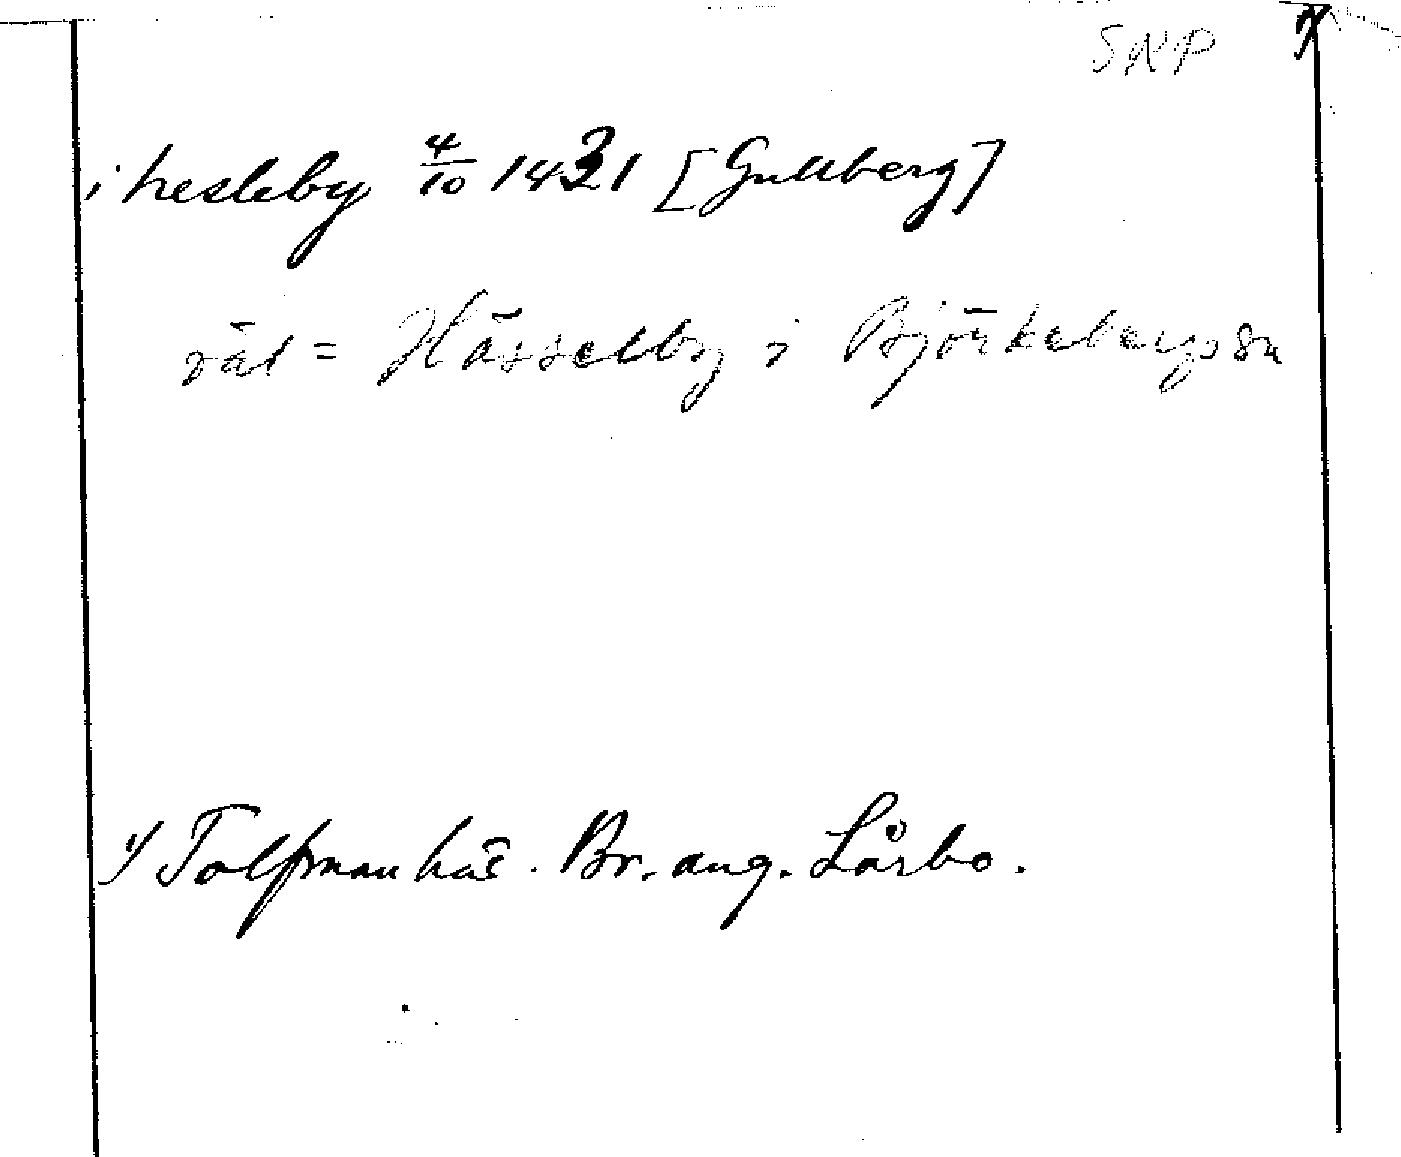 SNP
i hesleby 4/10 1431 [Gullberg]
väl = Hässelby i Björkebergs sn
1/ Tolfman här. Br. ang. Lårbo.